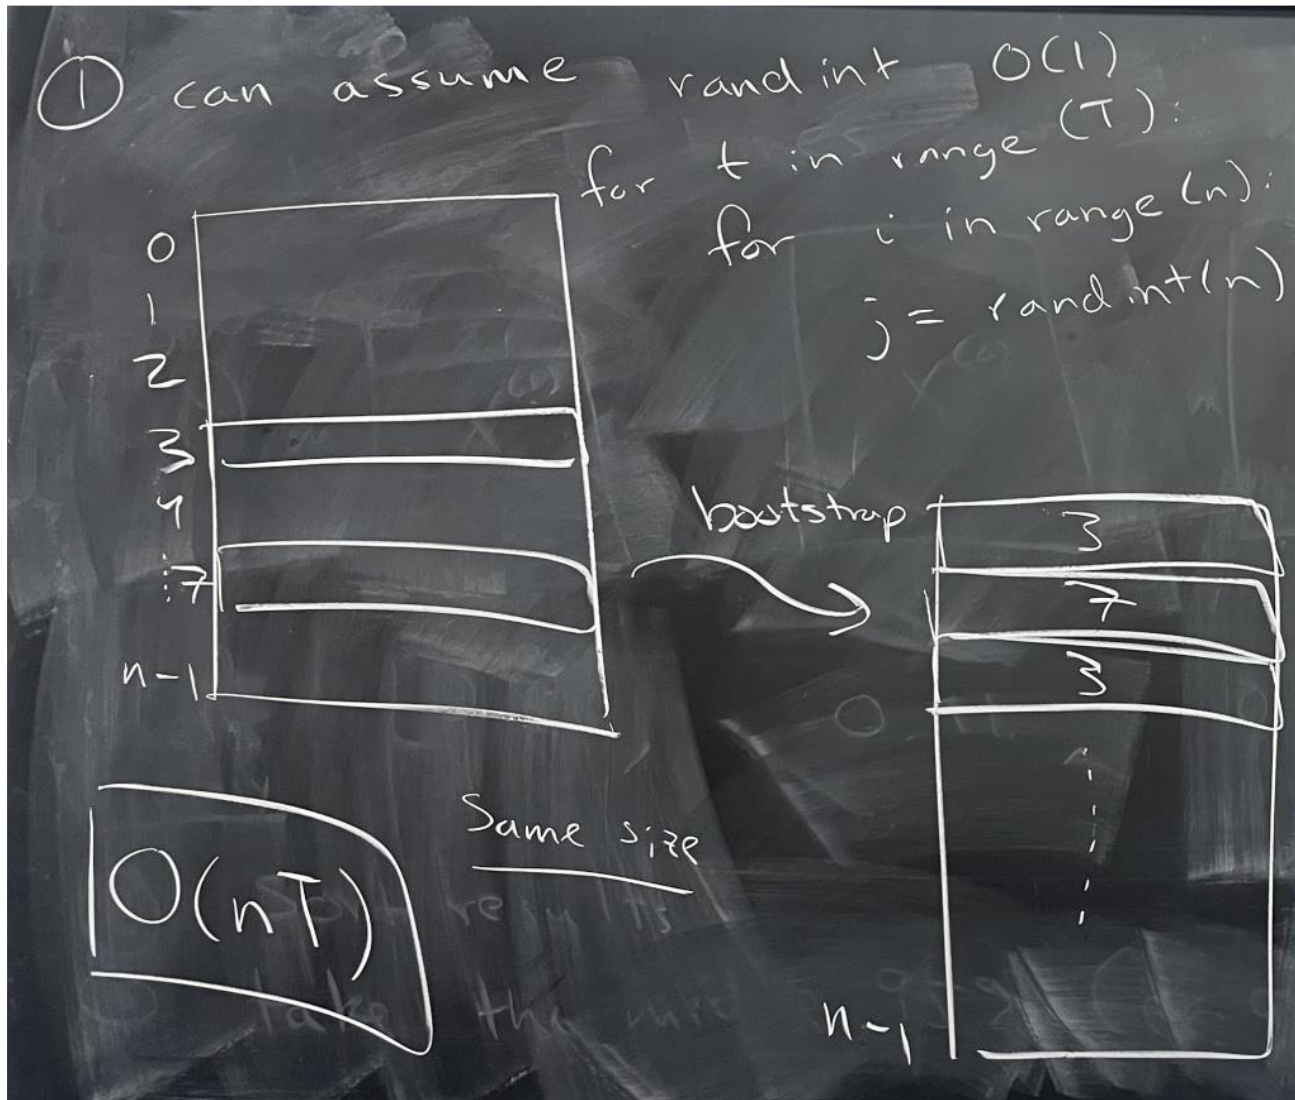 ① can assume randint O(1)
for t in range (T):
for i in range (n):
j = randint(n)
0
1
2
3
4
⋮ 7
n-1
bootstrap
3
7
3
n-1
Same size
O(nT)
Sort results
take the mid